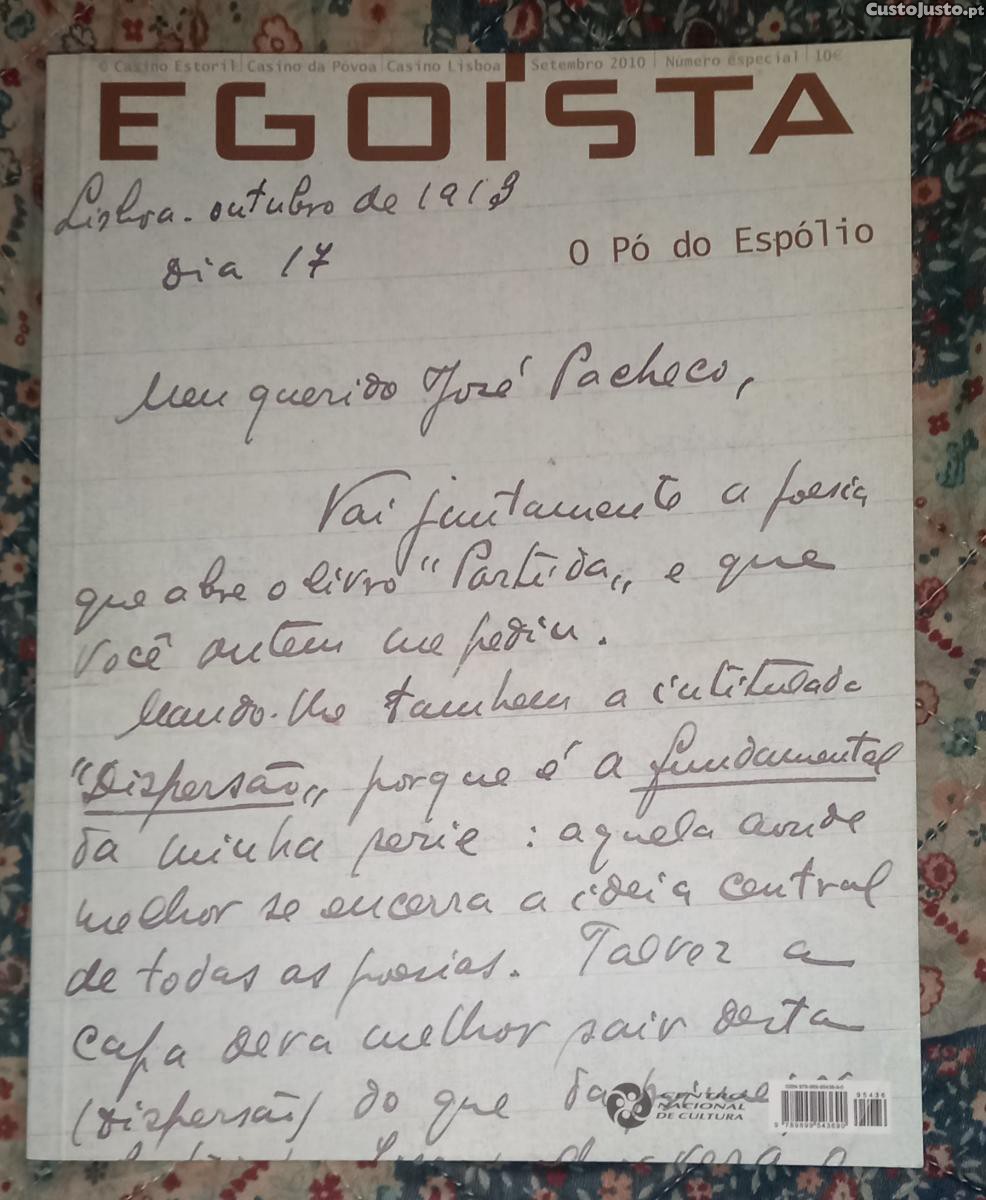 CustoJusto.pt
© Casino Estoril | Casino da Póvoa | Casino Lisboa | Setembro 2010 | Número especial | 10€
EGOÍSTA
Lisboa. outubro de 1913
Dia 17
O Pó do Espólio
Meu querido José Pacheco,
Vai juntamente a poesia
que abre o livro "Partida„ e que
você ontem me pediu.
Mando-lhe tambem a intitulada
"Dispersão„ porque é a fundamental
da minha serie : aquela aonde
melhor se encerra a ideia central
de todas as poesias. Talvez a
capa deva melhor sair desta
(Dispersão) do que da
CENTRO
NACIONAL
DE CULTURA
95436